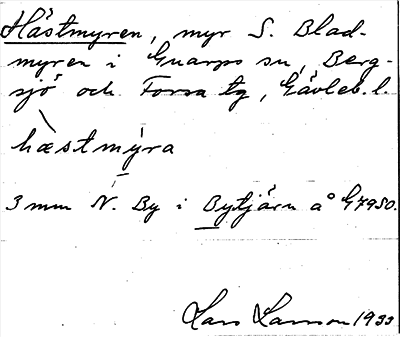 Hästmyren, myr S. Blad-
myren i Gnarps sn, Berg-
sjö och Forsa tg, Gävleb. l.
hæstmýra
3 mm N. By i Bytjärn å G7950.
Lars Larsson 1933